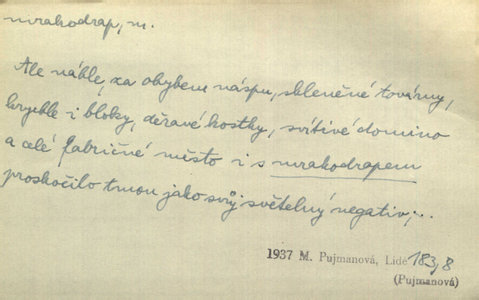 mrakodrap, m.
Ale náhle, za ohybem náspu, skleněné továrny,
krychle i bloky, děravé kostky, svítivé domino
a celé fabričné město i s mrakodrapem
proskočilo tmou jako svůj světelný negativ;...
1937 M. Pujmanová, Lidé 183,8
(Pujmanová)